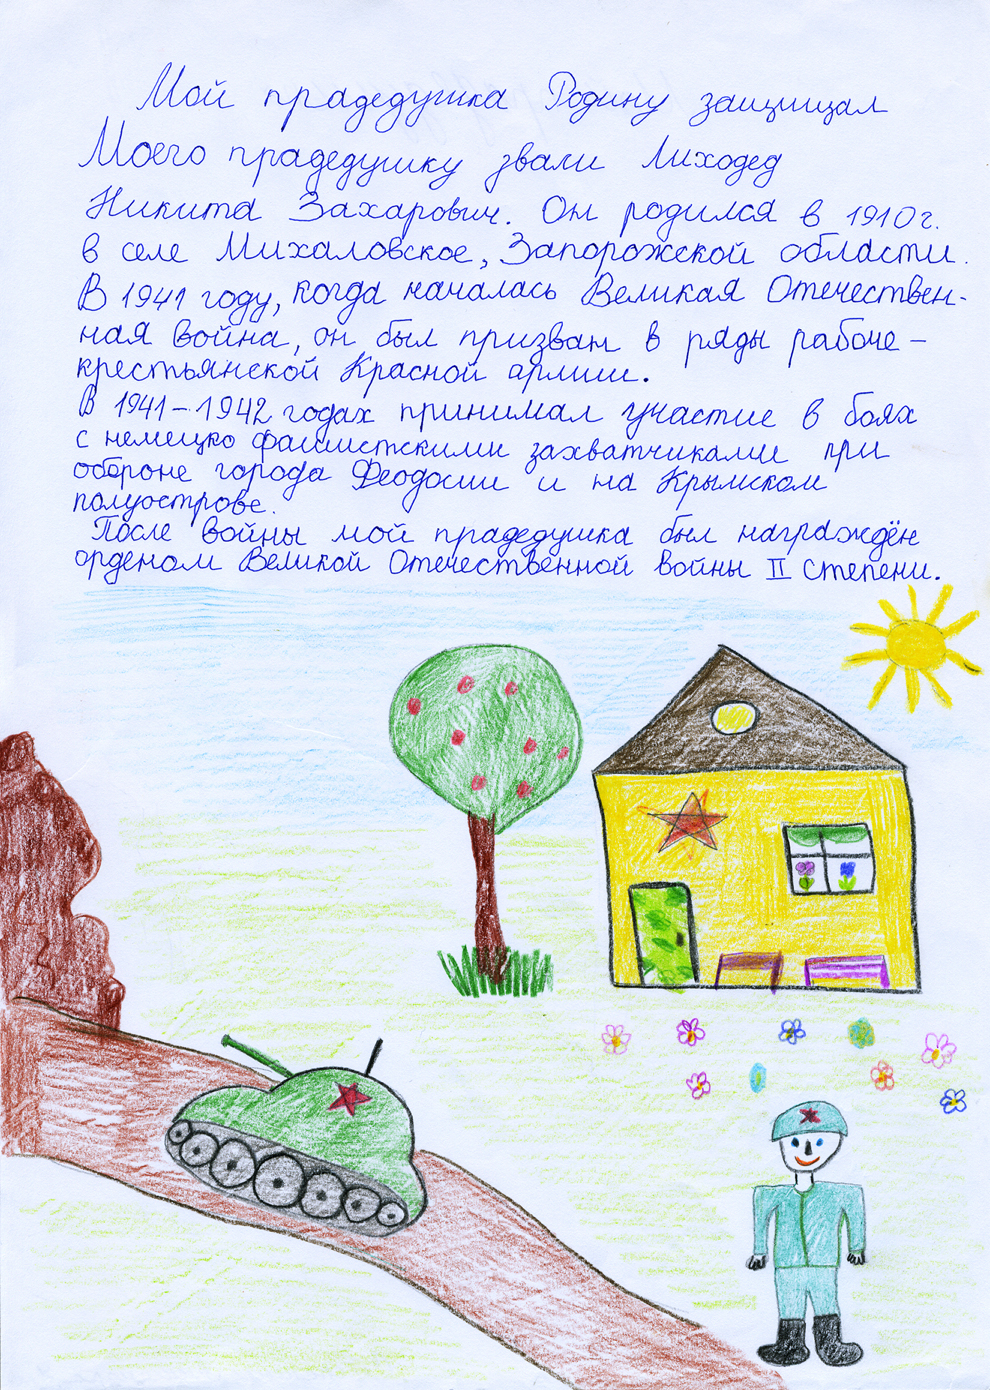 Мой прадедушка Родину защищал
Моего прадедушку звали Лиходед
Никита Захарович. Он родился в 1910 г.
в селе Михаловское, Запорожской области.
В 1941 году, когда началась Великая Отечествен-
ная война, он был призван в ряды рабоче-
крестьянской Красной армии.
В 1941-1942 годах принимал участие в боях
с немецко фашистскими захватчиками при
обороне города Феодосии и на Крымском
полуострове.
После войны мой прадедушка был награждён
орденом Великой Отечественной войны II степени.